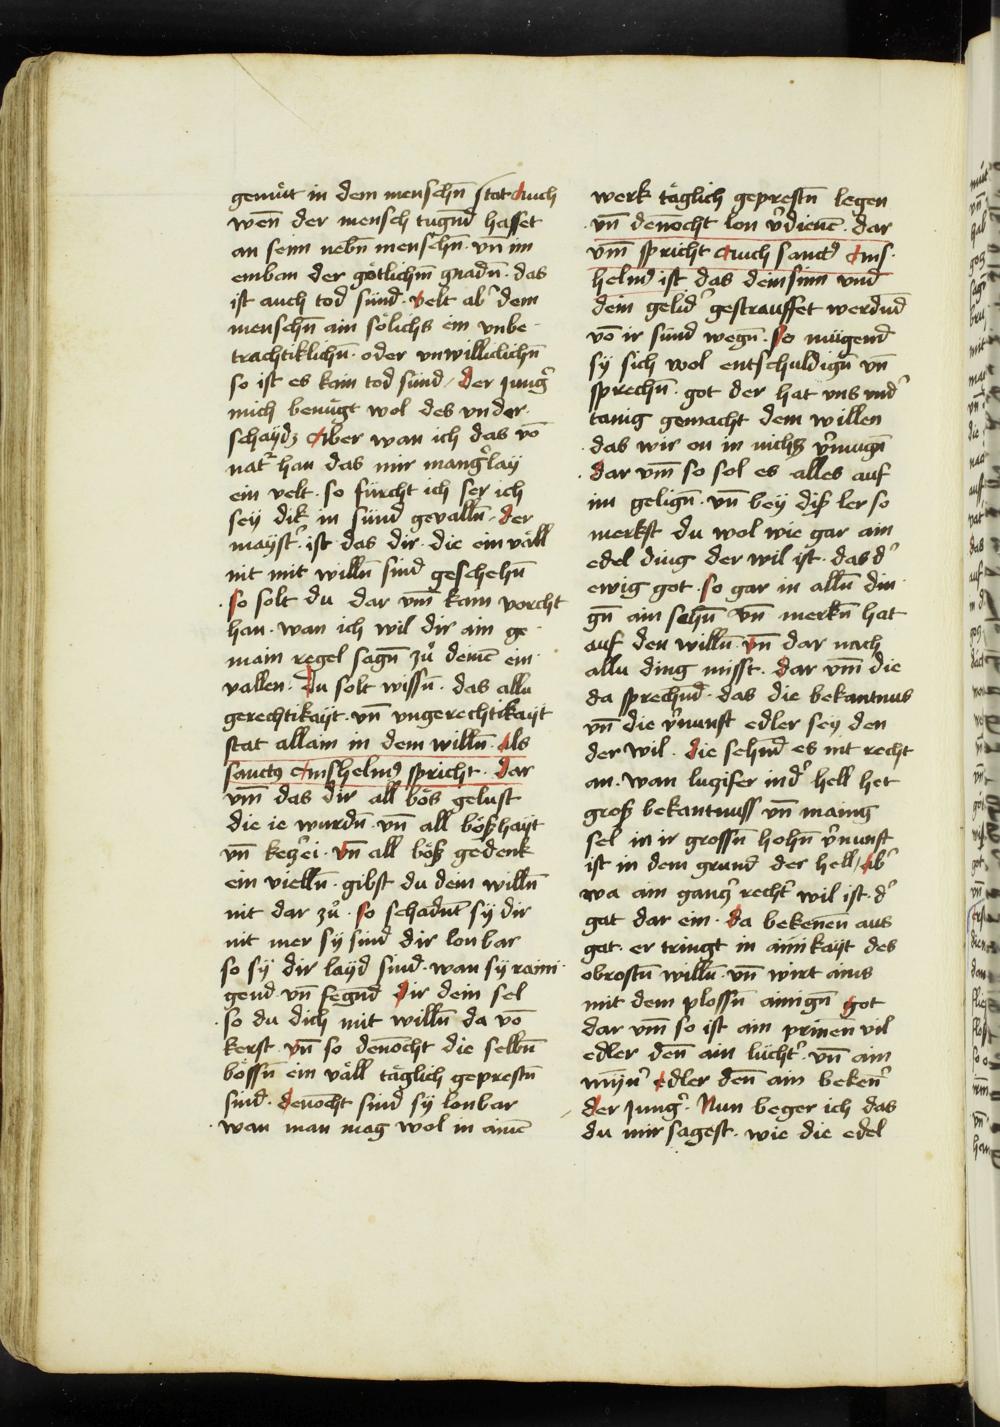 gemüt in dem menschn̄ stat Auch
wen̄ der mensch tugn̄d hasset
an senn nebn̄ menschn̄ · vn̄ im
emban der götlichm̄ gnadn̄ · das
ist auch tod sünd · velt ab͛ dem
menschn̄ ain sölichs ein vnbe·
trachtiklichn̄ · oder vnwilliclichn̄
so ist es kain tod sünd / der Jung͛
mich benügt wol des vnder·
schaydz Aber wan ich das vō
nat͛ han das mir mang͛lay
ein velt · so fürcht ich ser ich
sey dik in sünd gevalln̄ · der
mayst͛ · ist das dir · die ein väll
nit mit willn̄ sind geschehn̄
· so solt du dar vm̄ kain vorcht
han · wan ich wil dir ain ge·
main regel sagn̄ zů deinē ein·
vallen · Du solt wissn̄ · das allu
gerechtikayt · vn̄ vngerechtikayt
stat allain in dem willn̄ · Als
sanctꝰ Anshelmꝰ spricht · Dar
vm̄ das dir all bös gelust
die ie wurdn̄ · vn̄ all bößhayt
vn̄ ketz͛ei · vn̄ all böß gedenk
ein vielln̄ · gibst du dein willn̄
nit dar zů · so schadn̄t sy dir
nit mer sy sind dir lonbar
so sy dir layd sind · wan sy raini·
gend vn̄ fegn̄d dir dein sel
· so du dich mit willn̄ da vō
kerst · vn̄ so denocht die selbn̄
bössn̄ ein väll täglich geprestn̄
sind · denōcht sind sy lonbar
· wan man mag wol in ainē
werk täglich geprestn̄ legen
· vn̄ denōcht lon v͛dienē · dar
vm̄ spricht Auch sanctꝰ Ans·
helmꝰ ist das dein sinn vnd
dein gelid͛ gestrauffet werdn̄d
vō ir sünd wegn̄ · so mügend
sy sich wol entschuldign̄ vn̄
sprechn̄ · got der hat vns vnd͛
tanig gemacht dem willen
· das wir on in nichs v͛mugn̄
· dar vm̄ so sol es alles auf
im gelign̄ · vn̄ bey diß ler so
merkst du wol wie gar ain
edel ding der wil ist · das d͛
ewig got · so gar in alln̄ din·
gn̄ ain sehn̄ vn̄ merkn̄ hat
auf den willn̄ · vn̄ dar nach
allu ding misst · dar vm̄ die
da sprechn̄d · das die bekantnus
vn̄ die v͛nunft edler sey den
der wil · die sehn̄d es nit recht
an · wan lugifer in d͛ hell het
groß bekantnuss vn̄ mainig
sel in ir grossn̄ hohn̄ v͛nunft
ist in dem grund der hell / Ab͛
wa ain gantz͛ recht͛ wil ist · d͛
gat dar ein · da bekenēn aus
gat · er tringt in ainikayt des
obrostn̄ willn̄ · vn̄ wirt ains
mit dem plossn̄ ainign̄ got
dar vm̄ so ist ain prinen vil
edler den̄ ain lücht͛ · vn̄ ain
mȳn͛ edler den̄ ain beken͛
der Jung͛ · Nun beger ich das
du mir sagest · wie die edel